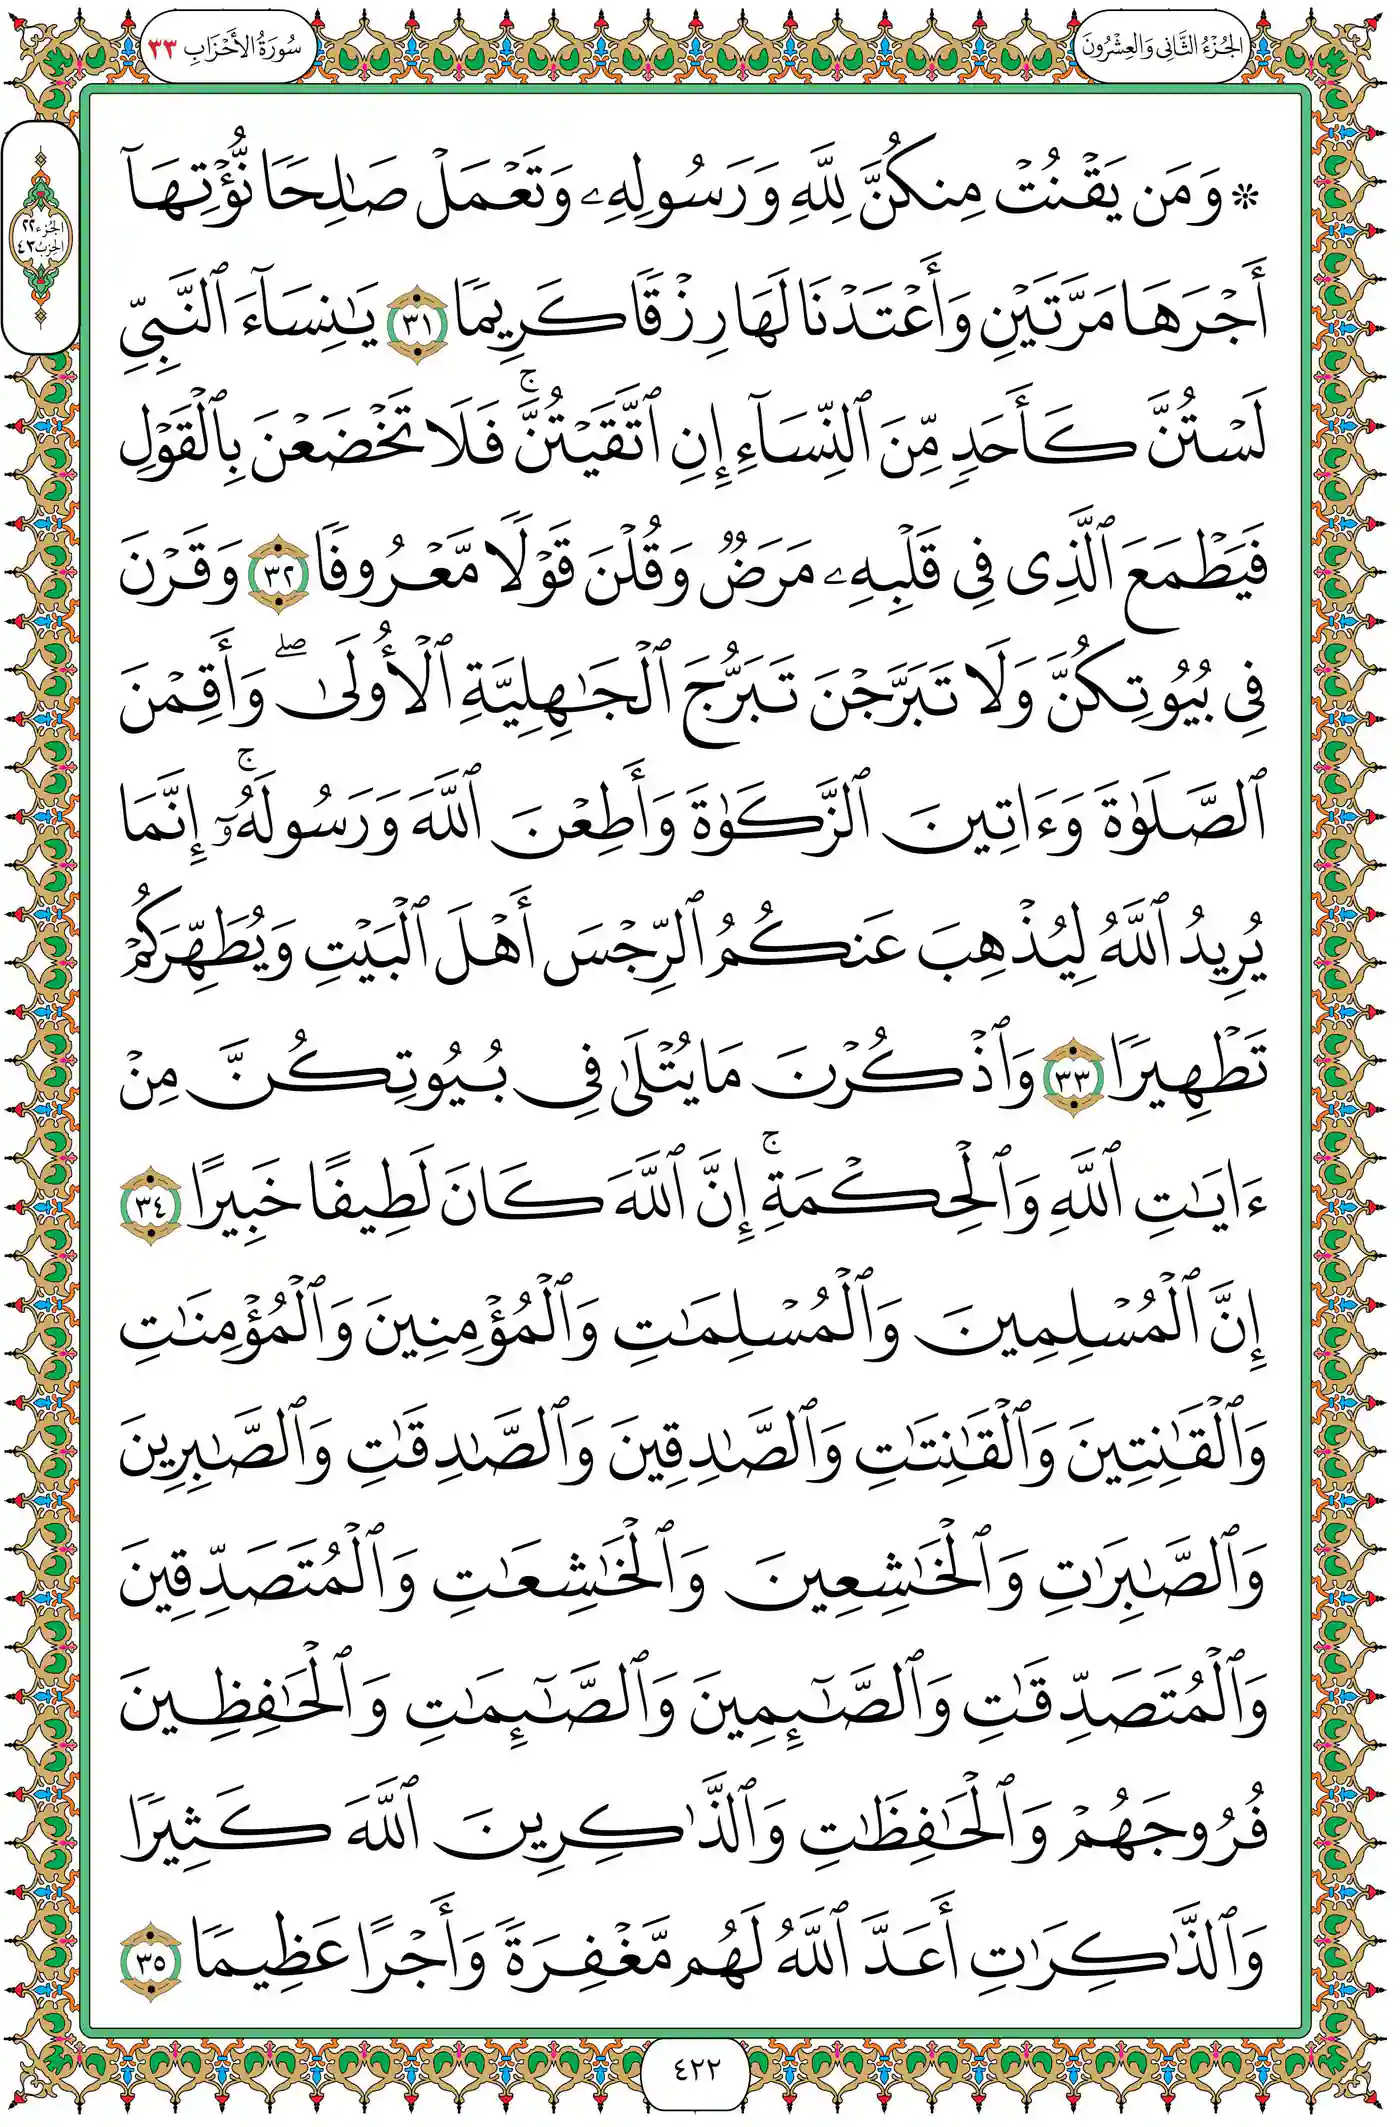 الجُزْءُ الثَّانِي وَالعِشْرُونَ
سُورَةُ الأَحْزَابِ ٣٣
الجزء ٢٢
الحزب ٤٣
۞ وَمَن يَقْنُتْ مِنكُنَّ لِلَّهِ وَرَسُولِهِۦ وَتَعْمَلْ صَٰلِحًا نُّؤْتِهَآ
أَجْرَهَا مَرَّتَيْنِ وَأَعْتَدْنَا لَهَا رِزْقًا كَرِيمًا ٣١ يَٰنِسَآءَ ٱلنَّبِيِّ
لَسْتُنَّ كَأَحَدٍ مِّنَ ٱلنِّسَآءِ إِنِ ٱتَّقَيْتُنَّۚ فَلَا تَخْضَعْنَ بِٱلْقَوْلِ
فَيَطْمَعَ ٱلَّذِى فِى قَلْبِهِۦ مَرَضٌ وَقُلْنَ قَوْلًا مَّعْرُوفًا ٣٢ وَقَرْنَ
فِى بُيُوتِكُنَّ وَلَا تَبَرَّجْنَ تَبَرُّجَ ٱلْجَٰهِلِيَّةِ ٱلْأُولَىٰۖ وَأَقِمْنَ
ٱلصَّلَوٰةَ وَءَاتِينَ ٱلزَّكَوٰةَ وَأَطِعْنَ ٱللَّهَ وَرَسُولَهُۥٓۚ إِنَّمَا
يُرِيدُ ٱللَّهُ لِيُذْهِبَ عَنكُمُ ٱلرِّجْسَ أَهْلَ ٱلْبَيْتِ وَيُطَهِّرَكُمْ
تَطْهِيرًا ٣٣ وَٱذْكُرْنَ مَا يُتْلَىٰ فِى بُيُوتِكُنَّ مِنْ
ءَايَٰتِ ٱللَّهِ وَٱلْحِكْمَةِۚ إِنَّ ٱللَّهَ كَانَ لَطِيفًا خَبِيرًا ٣٤
إِنَّ ٱلْمُسْلِمِينَ وَٱلْمُسْلِمَٰتِ وَٱلْمُؤْمِنِينَ وَٱلْمُؤْمِنَٰتِ
وَٱلْقَٰنِتِينَ وَٱلْقَٰنِتَٰتِ وَٱلصَّٰدِقِينَ وَٱلصَّٰدِقَٰتِ وَٱلصَّٰبِرِينَ
وَٱلصَّٰبِرَٰتِ وَٱلْخَٰشِعِينَ وَٱلْخَٰشِعَٰتِ وَٱلْمُتَصَدِّقِينَ
وَٱلْمُتَصَدِّقَٰتِ وَٱلصَّٰٓئِمِينَ وَٱلصَّٰٓئِمَٰتِ وَٱلْحَٰفِظِينَ
فُرُوجَهُمْ وَٱلْحَٰفِظَٰتِ وَٱلذَّٰكِرِينَ ٱللَّهَ كَثِيرًا
وَٱلذَّٰكِرَٰتِ أَعَدَّ ٱللَّهُ لَهُم مَّغْفِرَةً وَأَجْرًا عَظِيمًا ٣٥
٤٢٢